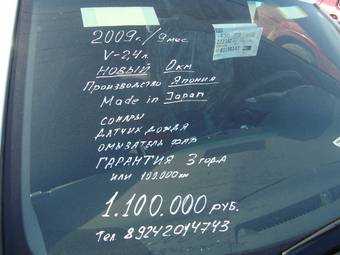 2009г. / 9 мес
V-2,4 л.
НОВЫЙ 0км
Производство Япония
Made in Japan
СОНАРЫ
ДАТЧИК ДОЖДЯ
ОМЫВАТЕЛЬ ФАР
ГАРАНТИЯ 3 год.А
или 100.000 км
1.100.000 РУБ.
Тел. 89242014743